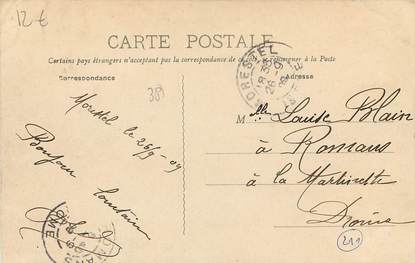 12 €
CARTE POSTALE
Certains pays étrangers n'acceptant pas la correspondance de ce côté, se renseigner à la Poste
Correspondance
Adresse
381
Morestel le 26/9-09
Bonjour
Lointain
MORESTEL
18 30
26 - 9
ISERE
DROME
Melle Louise Blain
à Romans
à la Martinette
Drôme
211